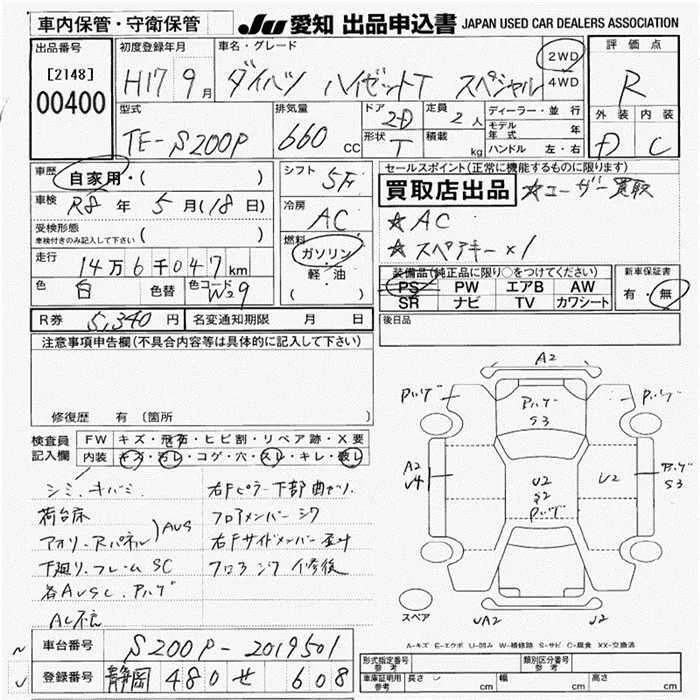 車内保管・守衛保管
JU 愛知 出品申込書 JAPAN USED CAR DEALERS ASSOCIATION
出品番号 [2148] 00400
初度登録年月 H17 9月
車名・グレード ダイハツ ハイゼットT スペシャル
2WD 4WD
評価点 R
外装 内装
D C
型式 TE-S200P
排気量 660 cc
ドア 2D
形状 T
定員 2 人
積載 kg
ディーラー・並行
モデル年式 年
ハンドル 左・右
車歴 自家用・( )
車検 R8年 5月(18日)
受検形態 車検付きのみ記入して下さい ( )
走行 14万6千047km
色 白 色替 色コード W09
シフト 5F
冷房 AC
燃料 ガソリン・軽油 ( )
セールスポイント(正常に機能するものに限ります)
買取店出品 ☆ユーザー買取
☆AC
☆スペアキー×1
装備品(純正品に限り○をつけてください)
PS PW エアB AW
SR ナビ TV カワシート
新車保証書 有・無
R券 5,340円 名変通知期限 月 日
後日品
注意事項申告欄(不具合内容等は具体的に記入して下さい)
修復歴 有 〔箇所
検査員記入欄
FW キズ・飛石・ヒビ割・リペア跡・X要
内装 キズ・汚レ・コゲ・穴・スレ・キレ・破レ
シミ、キバミ、
荷台床
アオリ・Rパネル)AUS
下廻り、フレーム SC
各AUSC、Pハゲ
AC不良
右Fピラー下部曲セツ
フロアメンバーシワ
右Fサイドメンバー歪ミ
フロアシワ修復
A2
Pハゲ
Pハゲ S3
Pハゲ
A2 U4
U2 S2 Pハゲ
U2
Pハゲ S3
UA2
J2
スペア
A-キズ E-エクボ U-凹み W-補修跡 S-サビ C-腐食 XX-交換済
車台番号 S200P-2019501
登録番号 静岡 480 せ 608
形式指定番号 参考
類別区分番号 参考
車庫証明用 参考 長さ cm 幅 cm 高さ cm